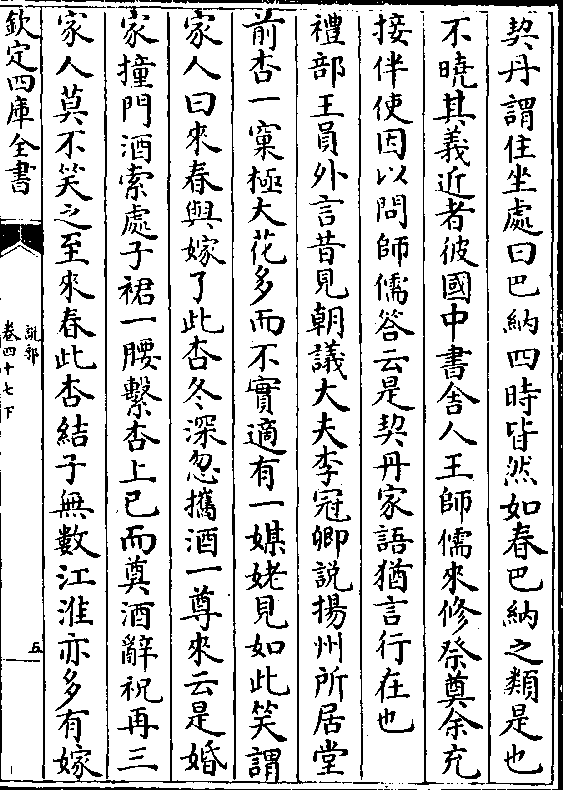 契丹謂住坐處曰巴納四時皆然如春巴納之類是也
不曉其義近者彼國中書舍人王師儒來修祭奠余充
接伴使因以問師儒答云是契丹家語猶言行在也
禮部王員外言昔見朝議大夫李冠卿說揚州所居堂
前杏一窠極大花多而不實適有一媒姥見如此笑謂
家人曰來春與嫁了此杏冬深忽攜酒一尊來云是婚
家撞門酒索處子裙一腰繫杏上已而奠酒辭祝再三
家人莫不笑之至來春此杏結子無數江淮亦多有嫁
欽定四庫全書
說郛
卷四十七下
五